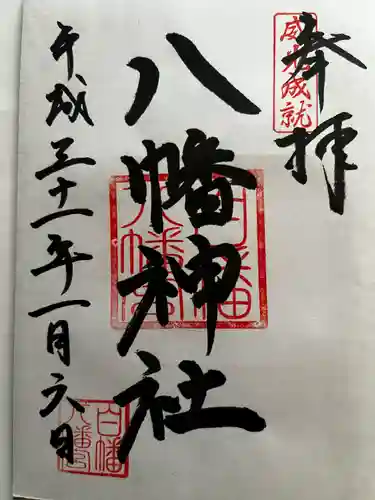 奉拝
威光成就
八幡神社
平成三十一年一月六日
白幡
八幡宮